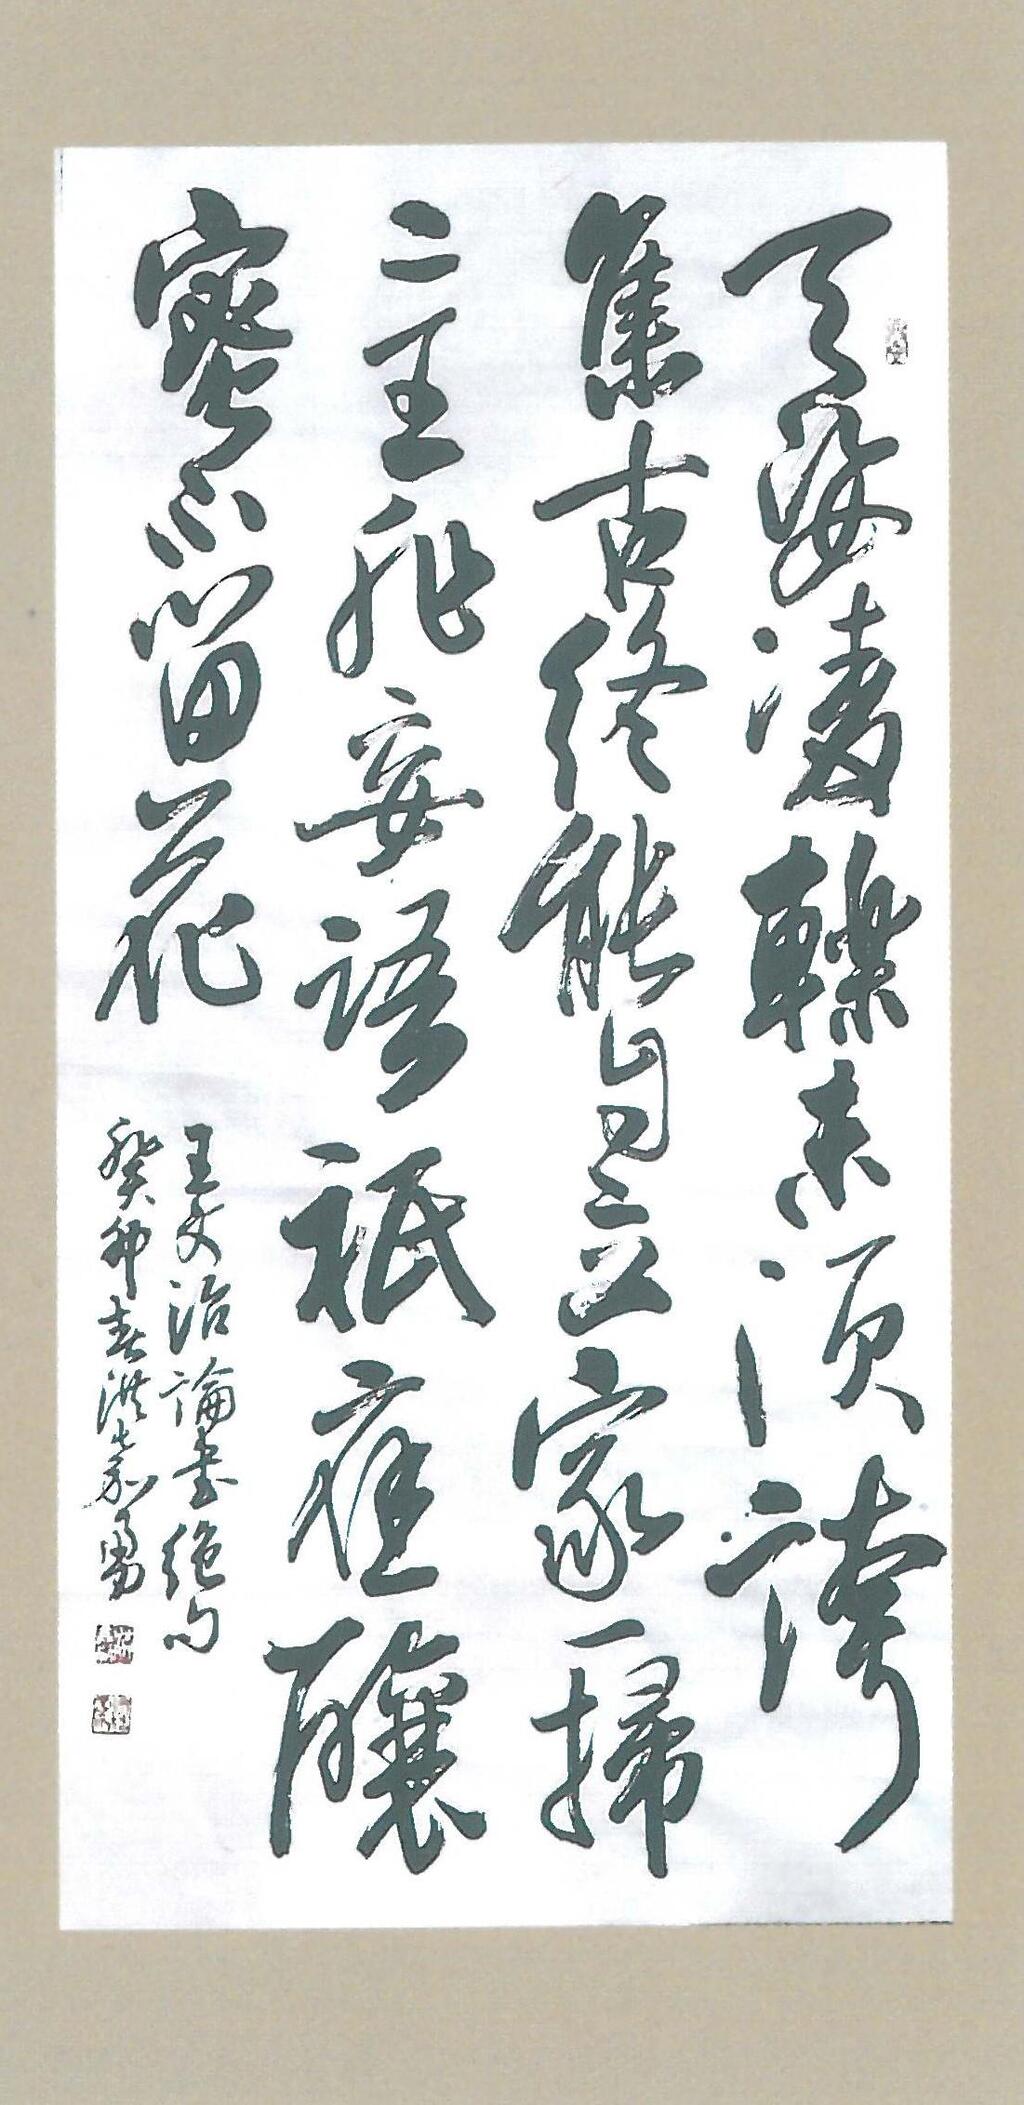 天姿凌轢未須誇
集古終能自立家一掃
二王非妄語祇應釀
蜜不留花
王文治論書絕句
癸卯春洪嘉勇